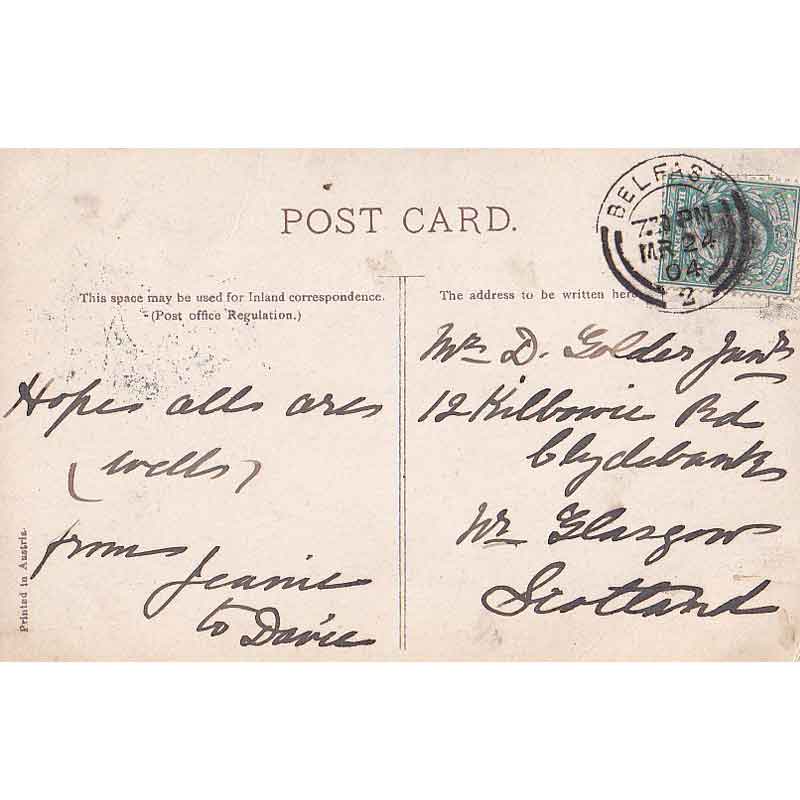 POST CARD.
BELFAST
7.30 PM
MR 24
04
2
This space may be used for Inland correspondence.
(Post office Regulation.)
The address to be written here
Hope all are
(well)
from Jeanie
to Davie
Mr D. Golder Junr
12 Kilbowie Rd
Clydebank
Nr Glasgow
Scotland
Printed in Austria.